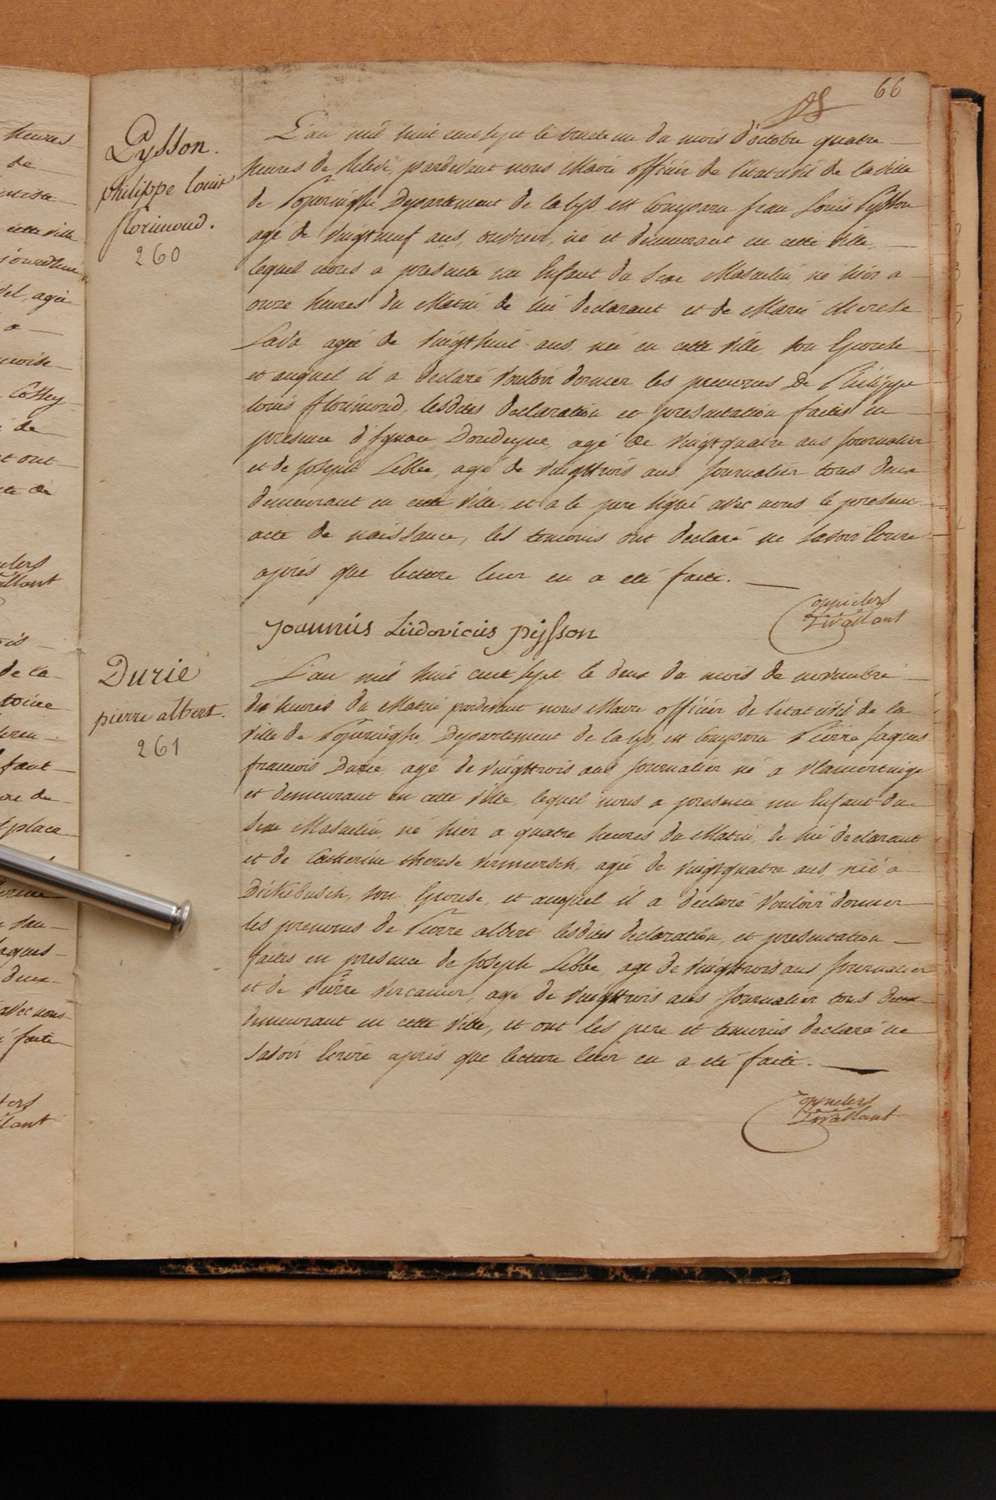 66
Pysson.
philippe louis
florimond.
260
L'an mil huit cent sept le trente un du mois d'octobre quatre
heures de relevé, pardevant nous Maire officier de l'état civil de la ville
de Poperinghe Departement de la Lys est comparu jean Louis Pysson
agé de vingtneuf ans, ouvrier, né et demeurant en cette ville,
lequel nous a presenté un Enfant du Sexe Masculin né hier a
onze heures du Matin de lui declarant et de Marie therese
agée de vingthuit ans née en cette ville son Epouse
et auquel il a declaré vouloir donner les prenoms de Philippe
louis florimond, lesdites declaration et presentation faites en
presence d'Ignace Doudeyne, agé de vingtquatre ans journalier
et de joseph Lebbe agé de vingttrois ans journalier tous deux
demeurant en cette ville, et a le pere signé avec nous le present
acte de naissance, les temoins ont declaré ne savoir Ecrire
après que lecture leur en a été faite.
Joannius Ludovicus pijsson
Durie
pierre albert.
261
L'an mil huit cent sept le deux du mois de novembre
dix heures du Matin pardevant nous Maire officier de l'état civil de la
ville de Poperinghe Departement de la Lys, est comparu Pierre jaques
francois Durie agé de vingttrois ans journalier né a vlamertinge
et demeurant en cette ville, lequel nous a presenté un Enfant du
Sexe Masculin, né hier a quatre heures du Matin, de lui declarant
et de Catherine therese Vermeersch, agée de vingtquatre ans née a
Dickebusch, son Epouse, et auquel il a declaré vouloir donner
les prenoms de Pierre albert lesdites declaration, et presentation
faites en presence de joseph Lebbe, agé de vingttrois ans journalier
et de Pierre agé de vingttrois ans journalier tous deux
demeurant en cette ville, et ont les pere et temoins declaré ne
savoir Ecrire après que lecture leur en a été faite.